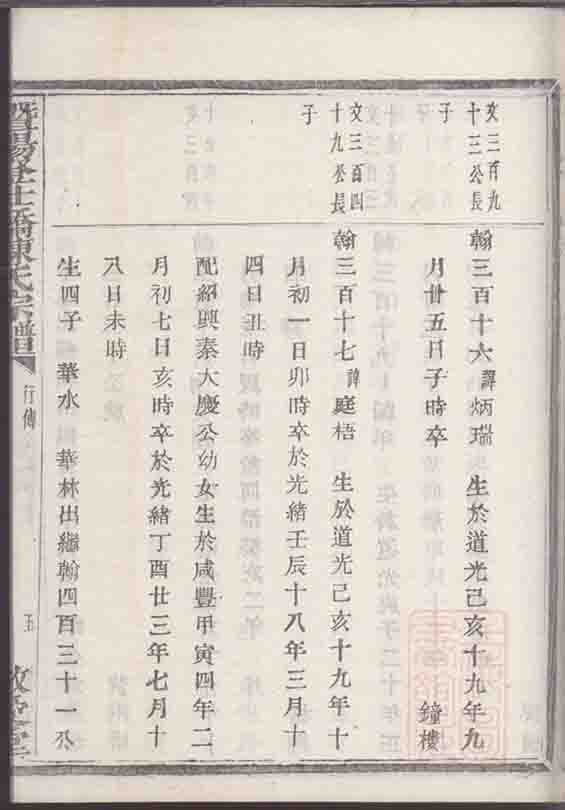 文三百九
十三公長
子
文三百四
十九公長
子
翰三百十六諱炳瑞 生於道光己亥十九年九
月廿五日子時卒 鐘樓
翰三百十七諱庭梧 生於道光己亥十九年十
月初一日卯時卒於光緒壬辰十八年三月十
四日丑時
配紹興秦大慶公幼女生於咸豐甲寅四年二
月初七日亥時卒於光緒丁酉廿三年七月十
八日未時
生四子 華水 華林出繼翰四百三十一公
暨陽 陳氏宗譜 行傳 五